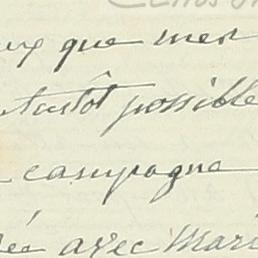 que mes
tantôt possible
campagne
avec Mari